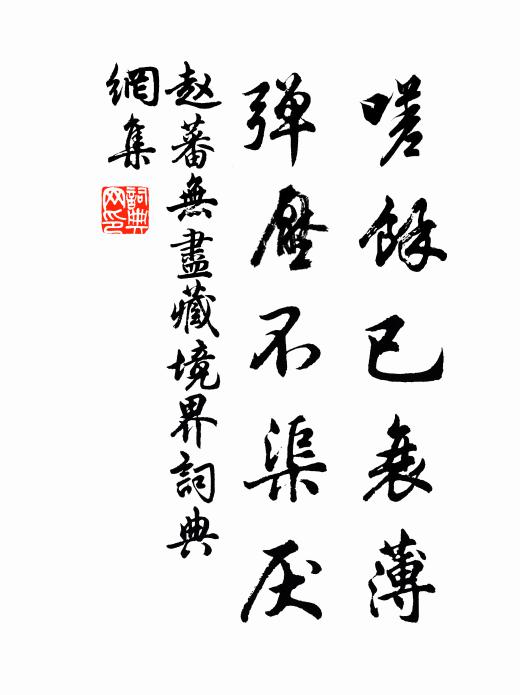 嗟餘已衰薄
弹壓不渠厌
赵蕃無盡藏境界詞典
網集
詞典
网印